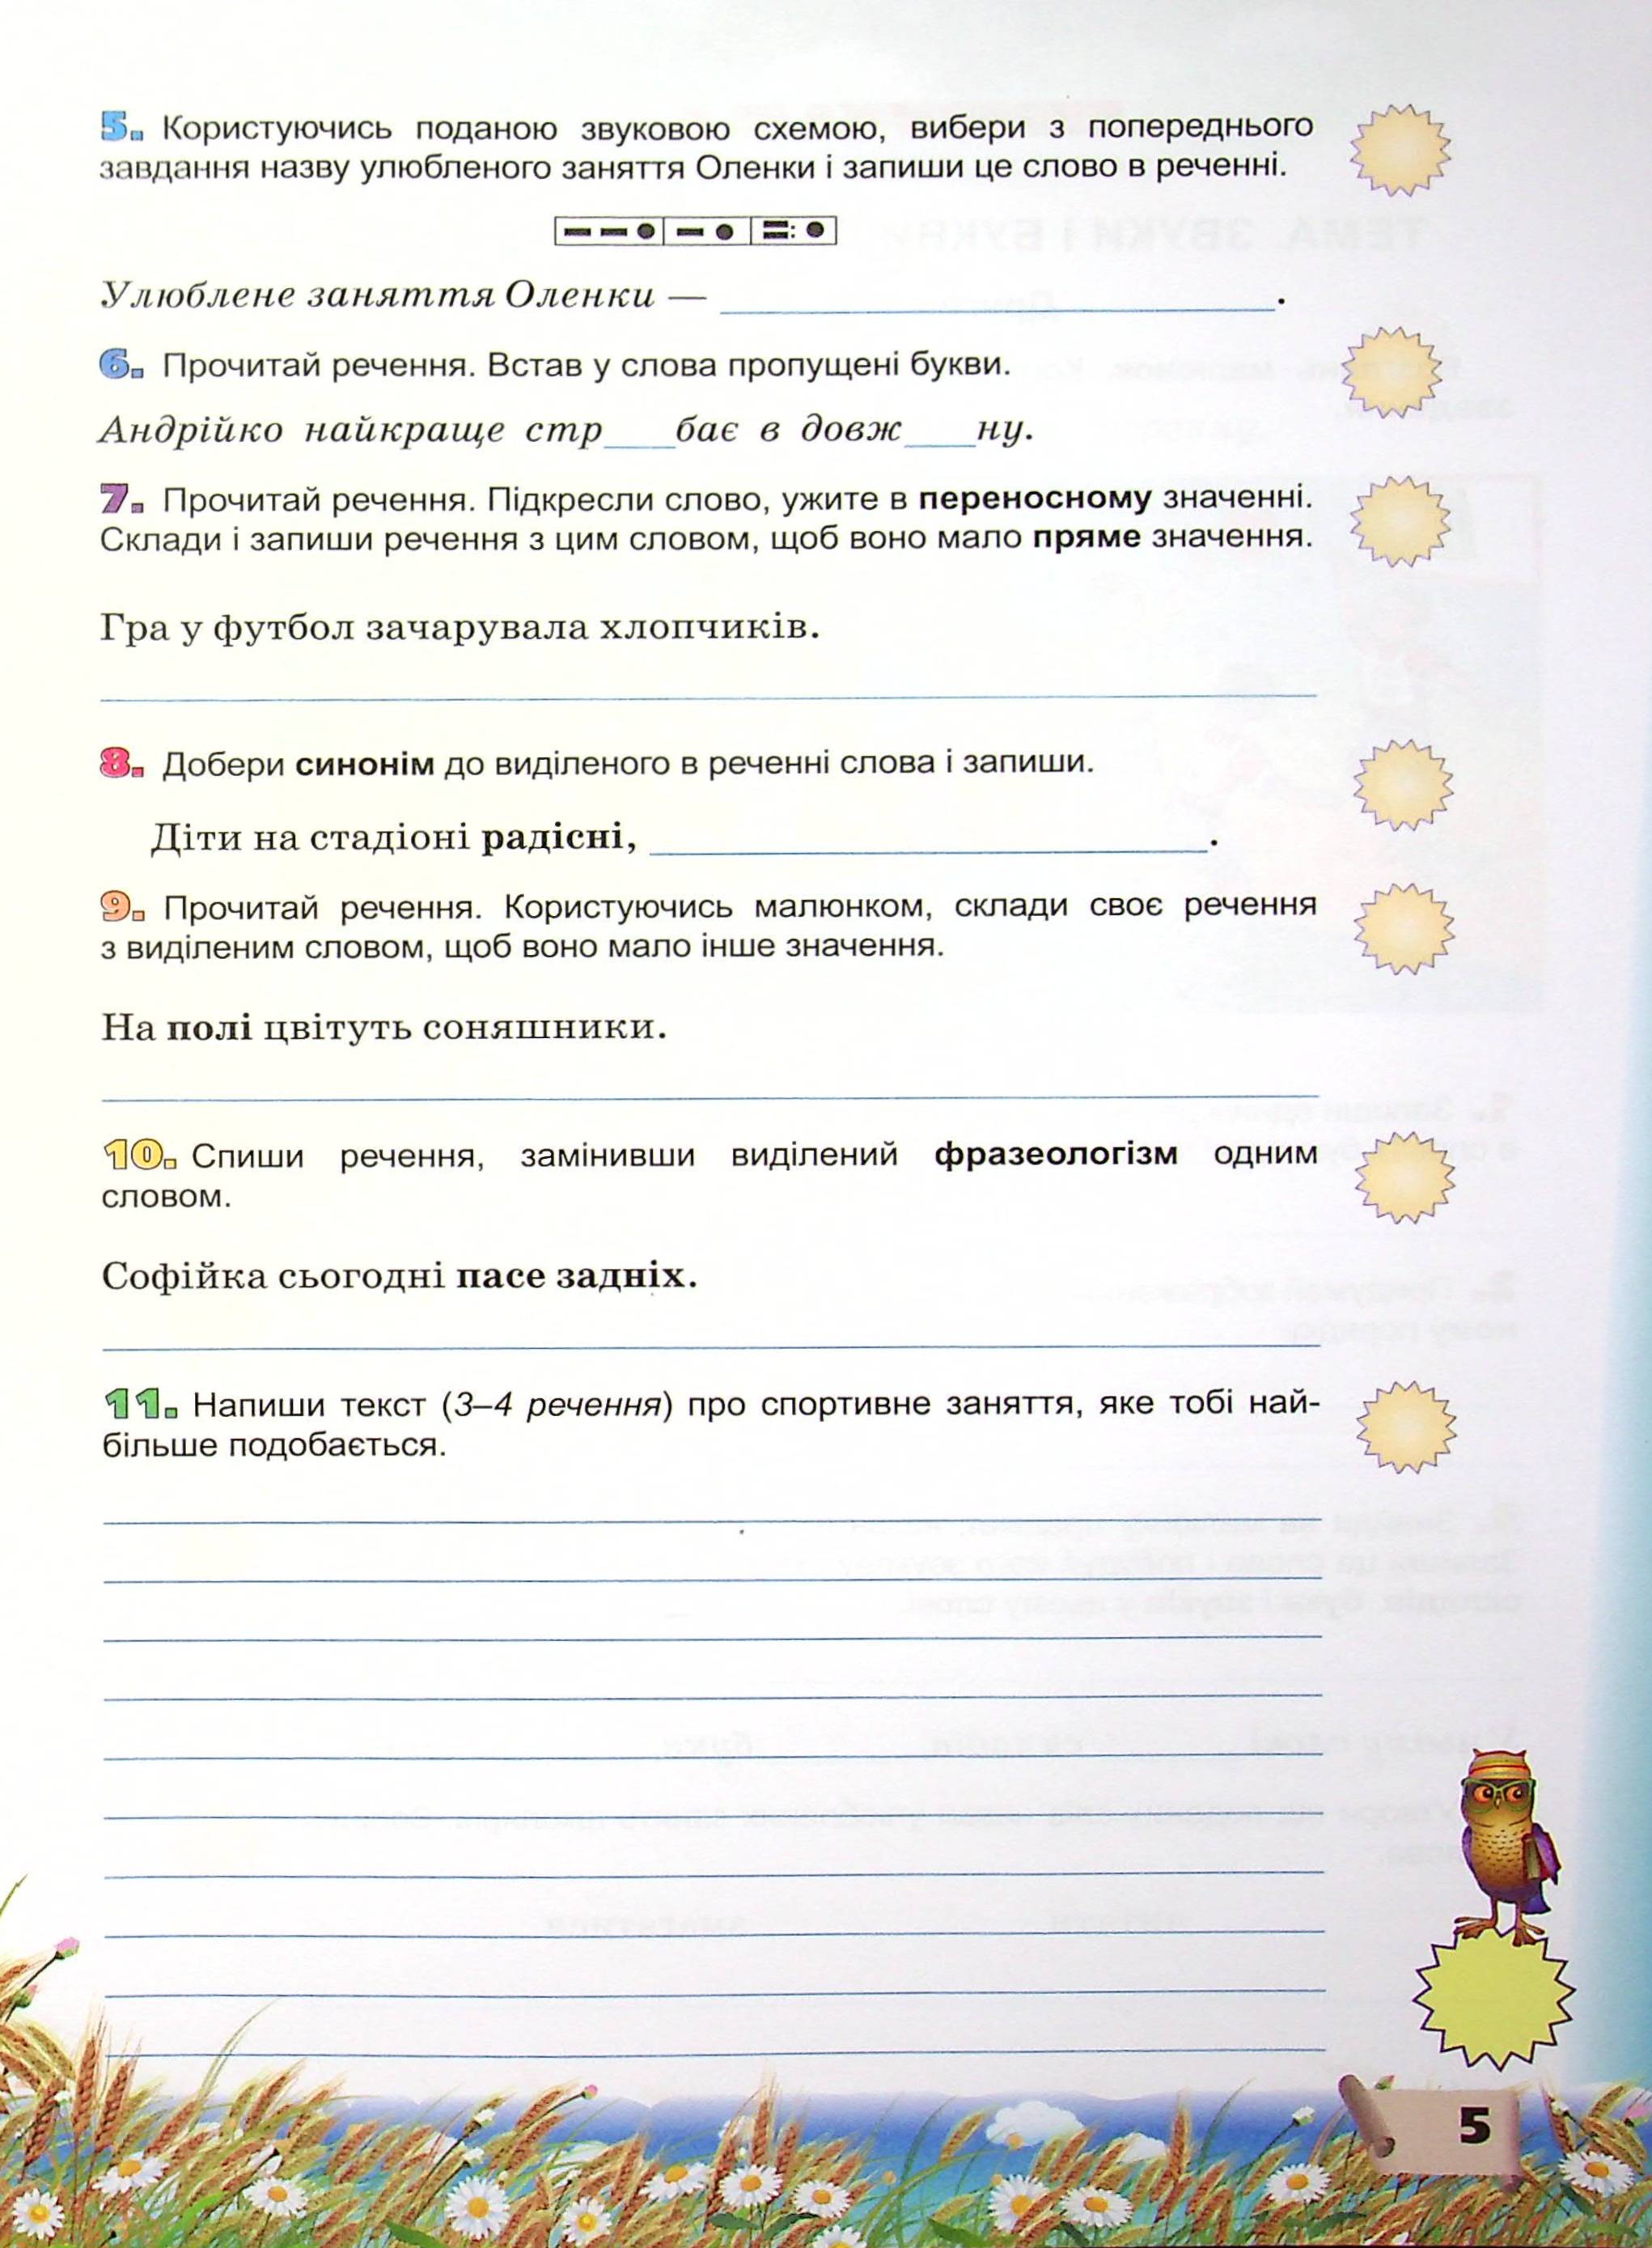 5. Користуючись поданою звуковою схемою, вибери з попереднього
завдання назву улюбленого заняття Оленки і запиши це слово в реченні.
Улюблене заняття Оленки — .
6. Прочитай речення. Встав у слова пропущені букви.
Андрійко найкраще стр___бає в довж___ну.
7. Прочитай речення. Підкресли слово, ужите в переносному значенні.
Склади і запиши речення з цим словом, щоб воно мало пряме значення.
Гра у футбол зачарувала хлопчиків.
8. Добери синонім до виділеного в реченні слова і запиши.
Діти на стадіоні радісні, .
9. Прочитай речення. Користуючись малюнком, склади своє речення
з виділеним словом, щоб воно мало інше значення.
На полі цвітуть соняшники.
10. Спиши речення, замінивши виділений фразеологізм одним
словом.
Софійка сьогодні пасе задніх.
11. Напиши текст (3–4 речення) про спортивне заняття, яке тобі най-
більше подобається.
5